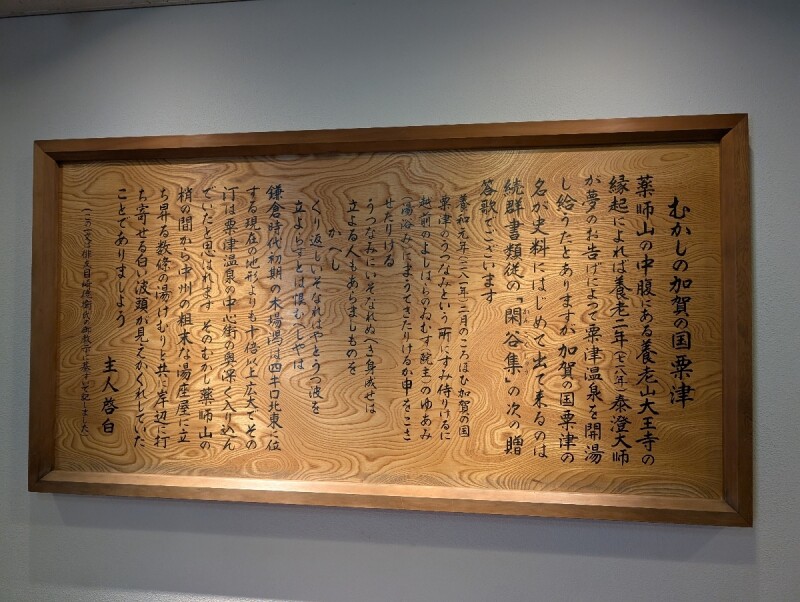 むかしの加賀の国粟津
薬師山の中腹にある養老山大王寺の
縁起によれば養老二年(七一八年)泰澄大師
が夢のお告げによって粟津温泉を開湯
し給うたとありますが 加賀の国粟津の
名が史料にはじめて出て来るのは
続群書類従の「閑谷集」の次の贈
答歌でございます
養和元年(一一八一年)二月のころほひ加賀の国
粟津のうつなみという所にすみ侍りけるに
越前のよしはらのゐむす(院主)のゆあみ
湯浴みにまうてきたりけるか申をこさ
せたりける
うつなみにいそなれぬへき身成せは
立よる人もあらましものを
かへし
くり返しいそなれはやとうつ波を
立よらすとは恨むへしやは
鎌倉時代初期の木場潟は四キロ北東に位
する現在の地形よりも十倍以上広大でその
汀は粟津温泉の中心街の奥深く入り込ん
でいたと思はれます そのむかし薬師山の
梢の間から中州の粗末な湯座屋に立
ち昇る数條の湯けむりと共に岸辺に打
ち寄せる白い波頭が見えかくれしていた
ことでありましょう
主人啓白